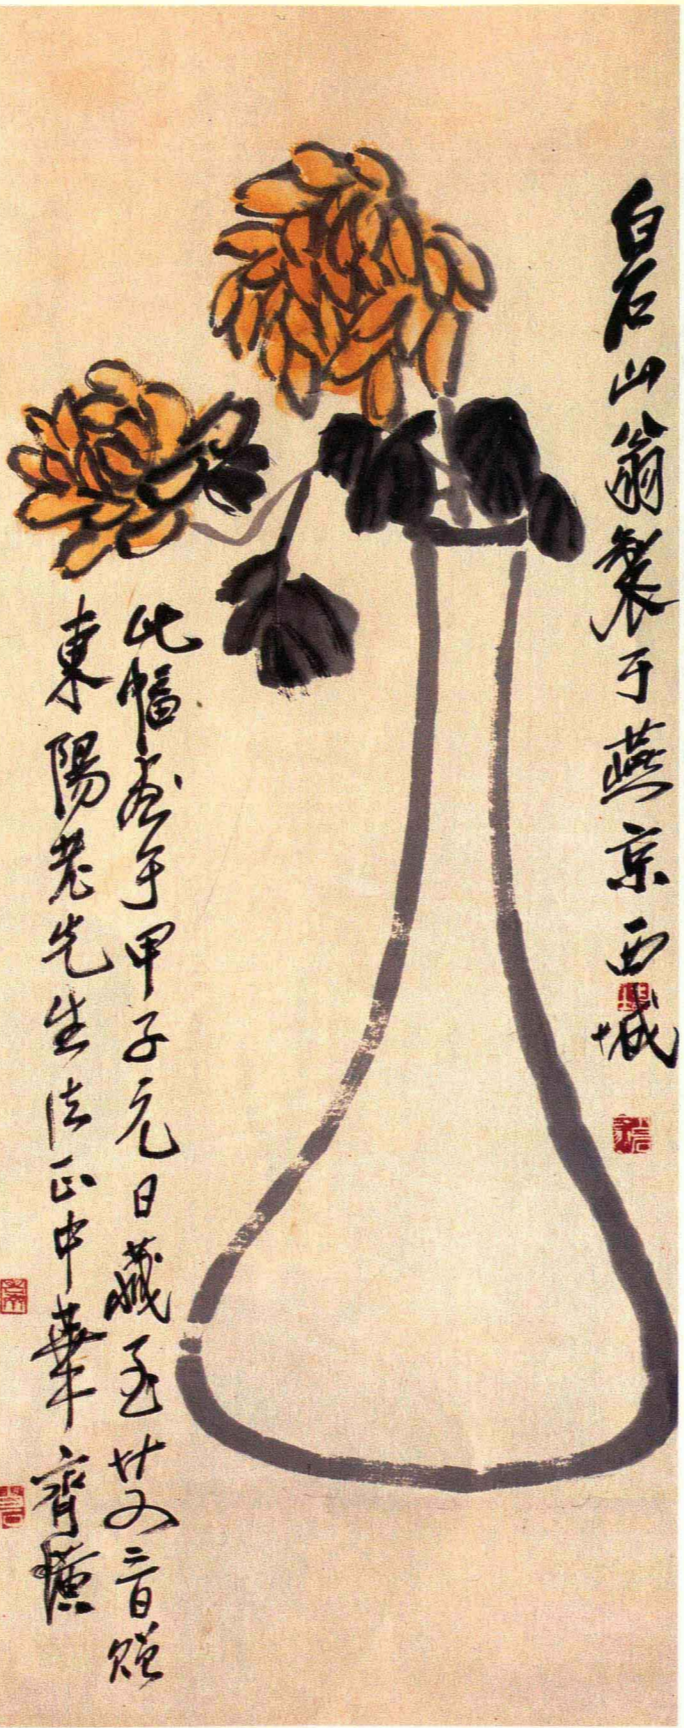 白石山翁製于燕京西城
此幅畫于甲子元日藏至廿又二音贈
東陽老先生法正中華齊璜